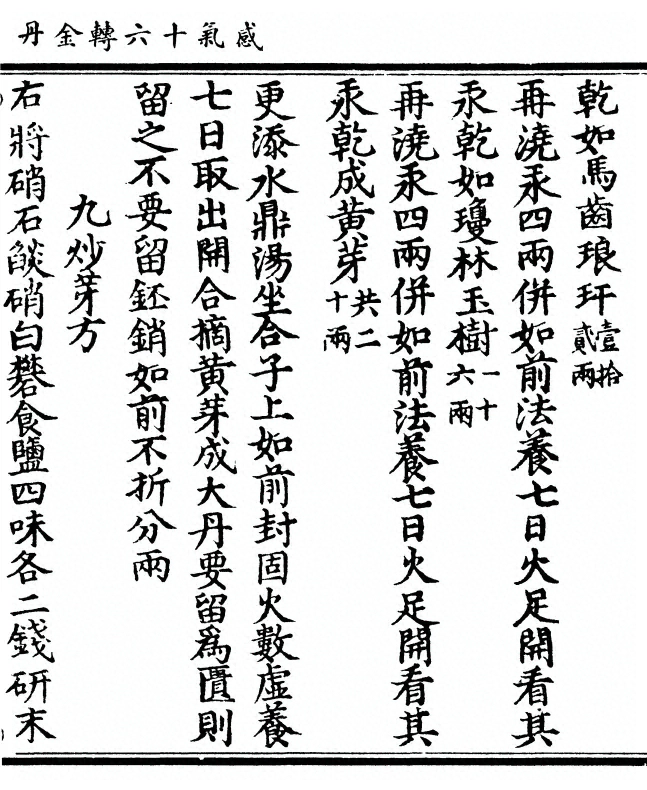 感氣十六轉金丹
乾如馬齒琅玕壹拾貳兩
再澆汞四兩併如前法養七日火足開看其
汞乾如瓊林玉樹一十六兩
再澆汞四兩併如前法養七日火足開看其
汞乾成黃芽共二十兩
更添水鼎湯坐合子上如前封固火數虛養
七日取出開合摘黃芽成大丹要留為匱則
留之不要留鉟銷如前不折分兩
九炒芽方
右將硝石燄硝白礬食鹽四味各二錢研末